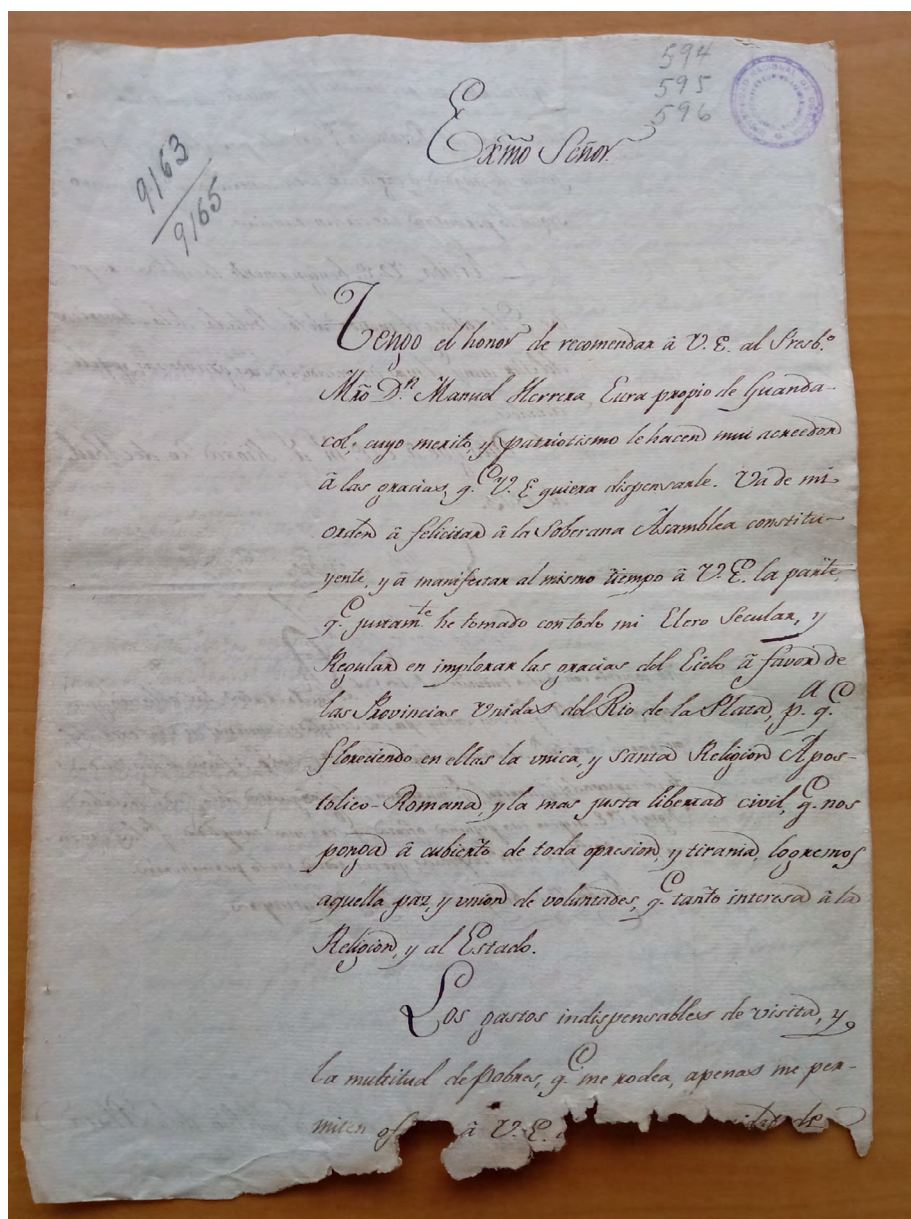 594
595
596
9163
9165
Exmo Señor
Tengo el honor de recomendar â V. E. al Presb.o
Mrô D.n Manuel Herrera, Cura propio de Guanda-
col, cuyo merito, y patriotismo le hacen mui acreedor
â las gracias, q.e V. E quiera dispensarle. Va de mi
orden â felicitar â la Soberana Asamblea constitu-
yente, y â manifestar al mismo tiempo â V. E. la parte,
q.e juntam.te he tomado con todo mi Clero Secular, y
Regular en implorar las gracias del Cielo â favor de
las Provincias Unidas del Rio de la Plata, p.a q.e
floreciendo en ellas la unica, y Santa Religion Apos-
tolico-Romana, y la mas justa libertad civil, q.e nos
ponga â cubierto de toda opresion, y tirania, logremos
aquella paz, y union de voluntades, q.e tanto interesa â la
Religion, y al Estado.
Los gastos indispensables de visita, y
la multitud de Pobres, q.e me rodea, apenas me per-
miten â V. E. de